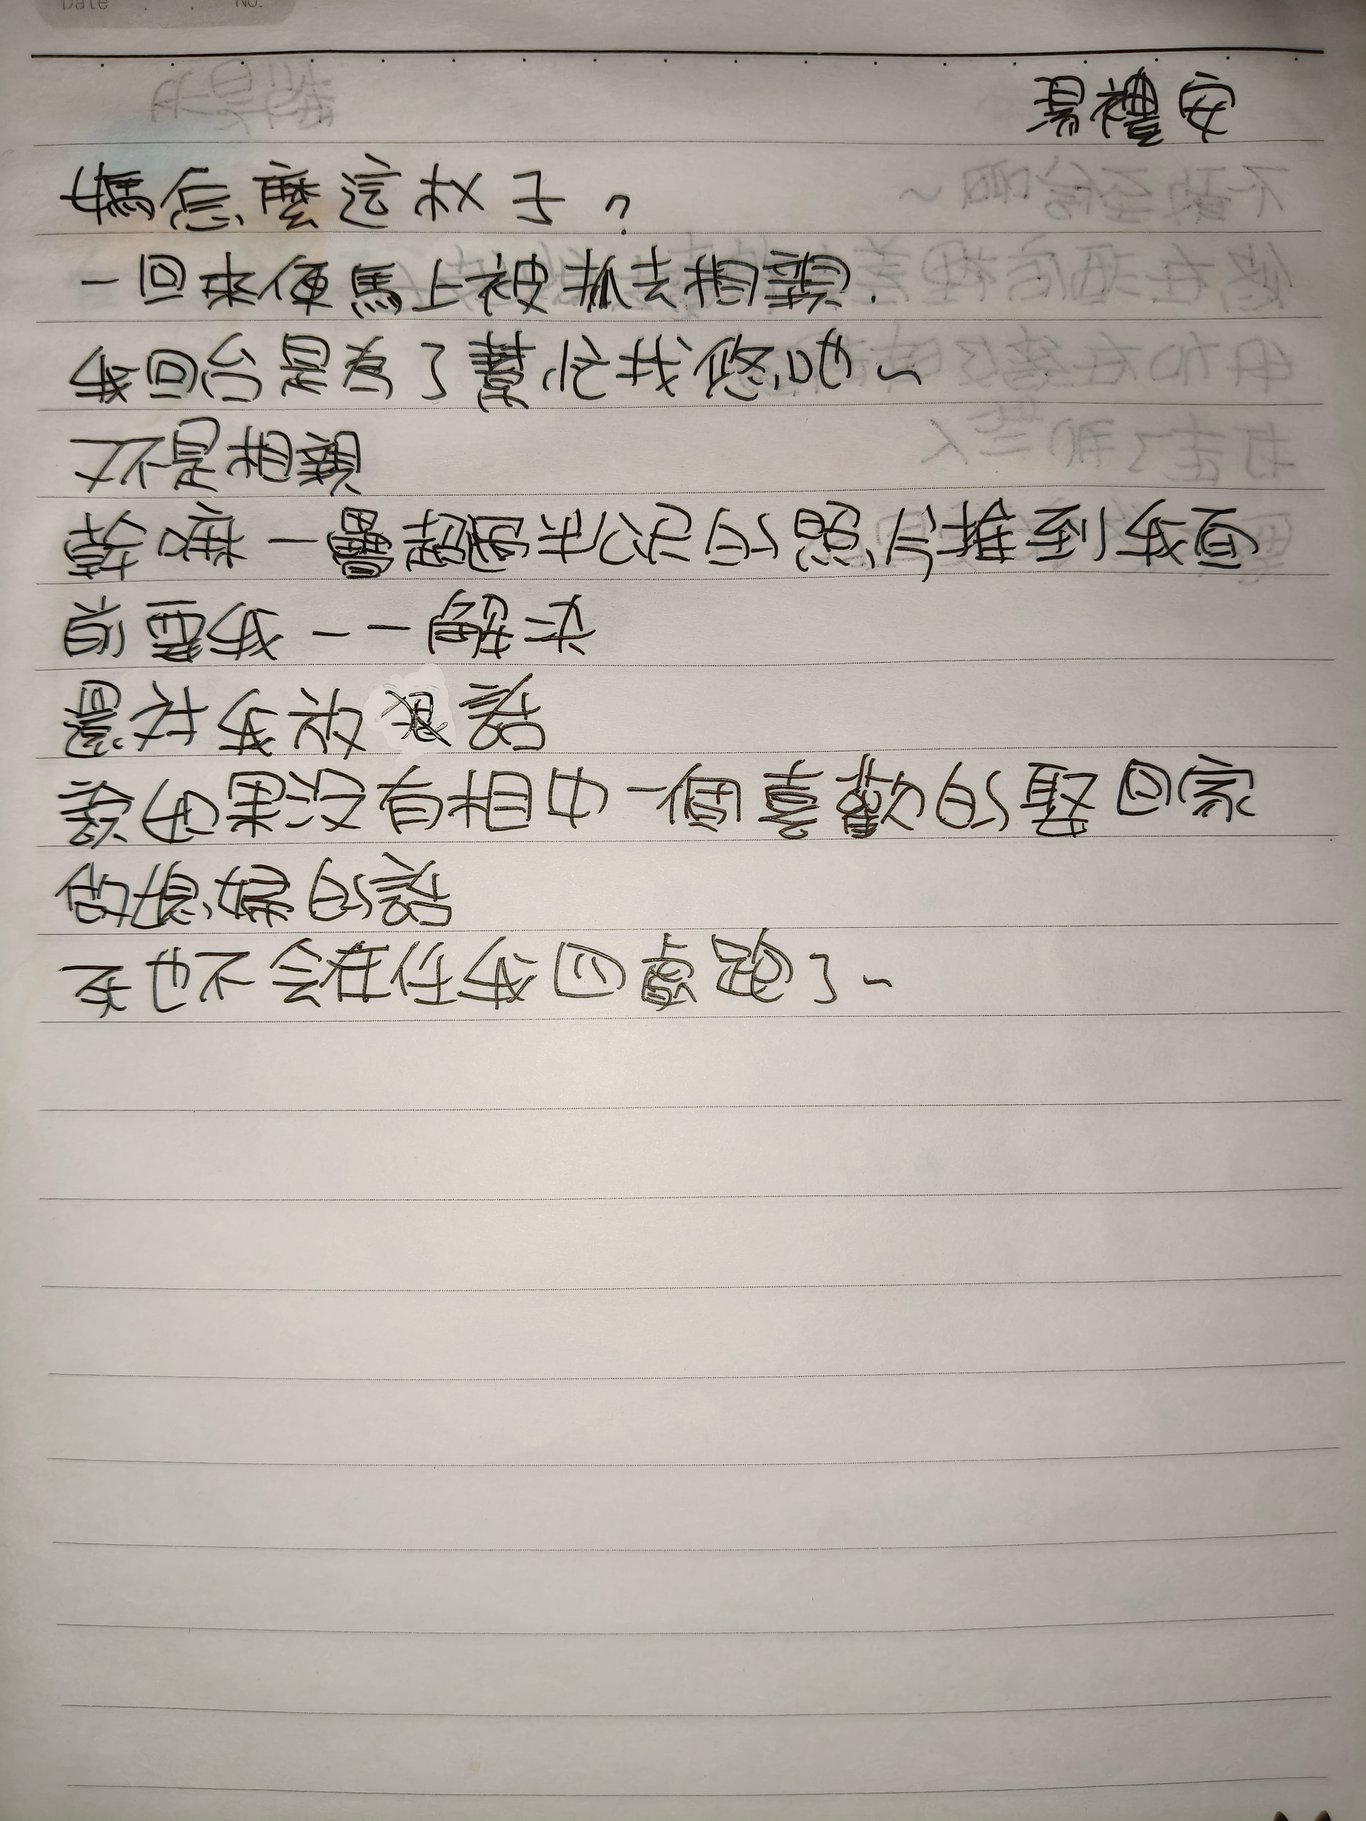 Date . . No.
湯禮安
媽怎麼這樣子？
一回來便馬上被抓去相親.
我回台是為了幫忙找悠吔~
又不是相親
幹嘛一疊超過
的照片推到我面
前要我一一解決
還於我放狠話
說如果沒有相中一個喜歡的娶回家
做媳婦的話
死也不会在任我四處跑了~